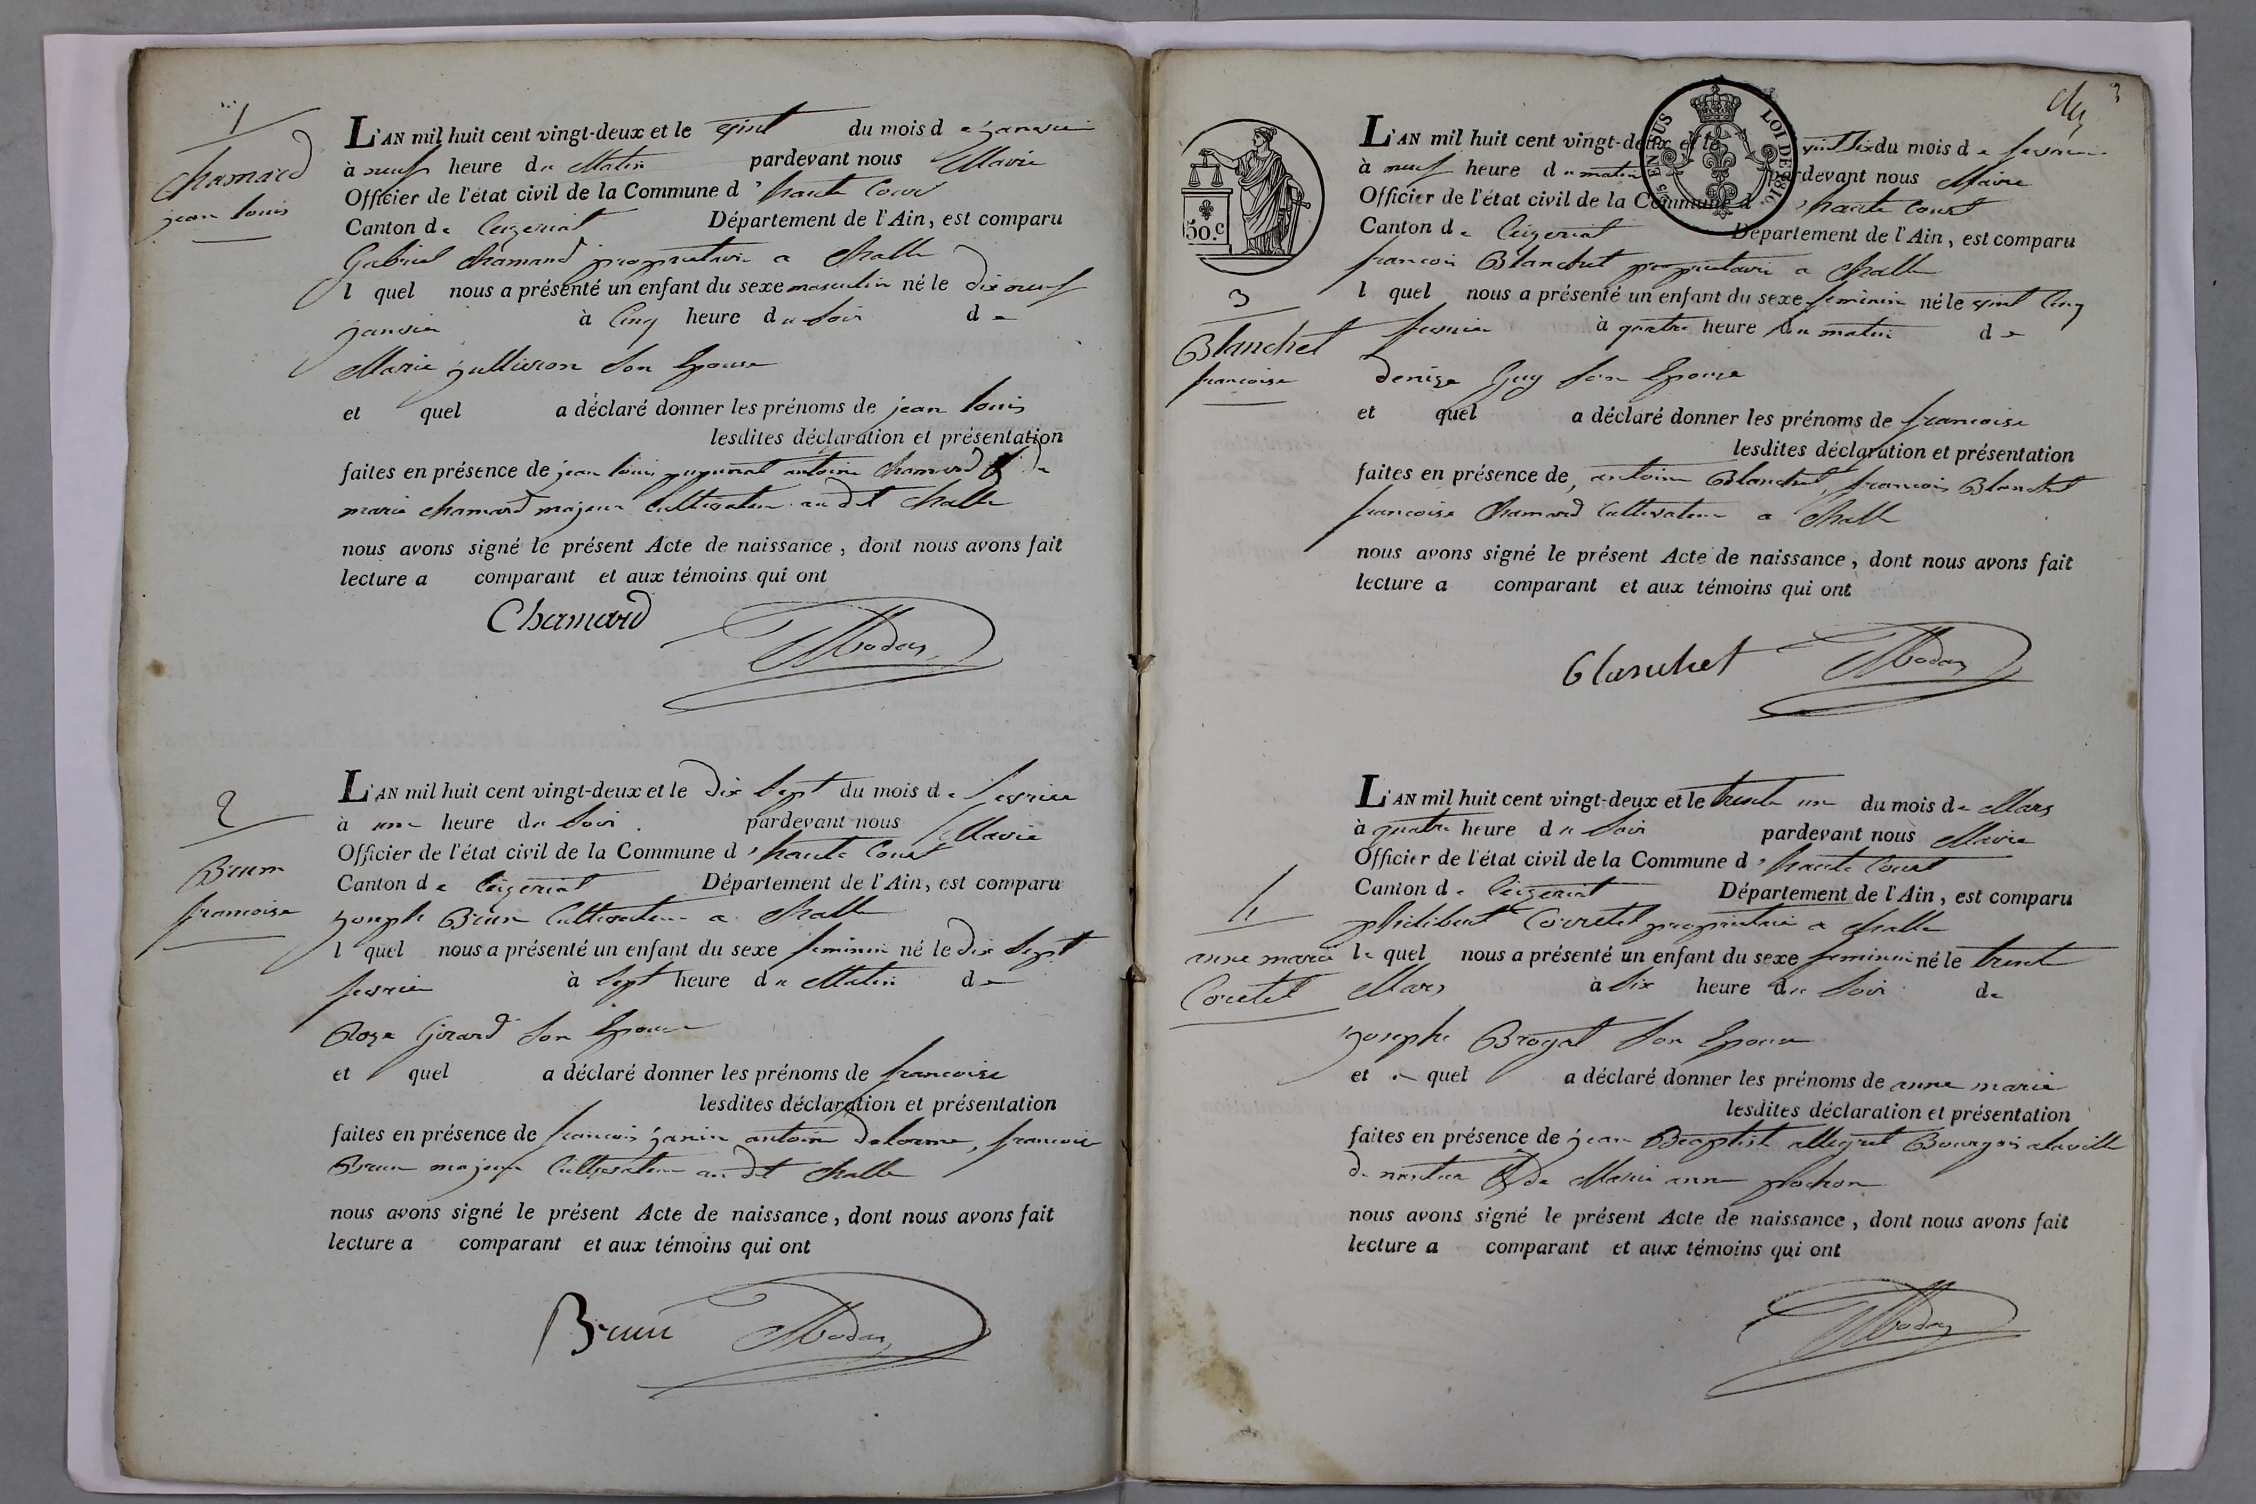 1
chamard
jean louis
L'AN mil huit cent vingt-deux et le vint du mois de janvier
à neuf heure du Matin pardevant nous Maire
Officier de l'état civil de la Commune d'haute Cour
Canton de Ceizeriat Département de l'Ain, est comparu
Gabriel chamard proprietaire a challe
l quel nous a présenté un enfant du sexe masculin né le dix neuf
janvier à Cinq heure du Soir de
Marie jullieron Son Epouse
et quel a déclaré donner les prénoms de jean louis
lesdites déclaration et présentation
faites en présence de jean louis antoine chamard & de
marie chamard majeur Cultivateur audit challe
nous avons signé le présent Acte de naissance, dont nous avons fait
lecture a comparant et aux témoins qui ont
Chamard
2
Brun
francoise
L'AN mil huit cent vingt-deux et le dix Sept du mois de fevrier
à une heure du Soir pardevant nous Maire
Officier de l'état civil de la Commune d'haute Court
Canton de Ceizeriat Département de l'Ain, est comparu
joseph Brun Cultivateur a challe
l quel nous a présenté un enfant du sexe feminin né le dix Sept
fevrier à Sept heure du Matin de
Roze Girard Son Epouse
et quel a déclaré donner les prénoms de francoise
lesdites déclaration et présentation
faites en présence de francois janin antoine delorme, francois
Brun majeur Cultivateur audit challe
nous avons signé le présent Acte de naissance, dont nous avons fait
lecture a comparant et aux témoins qui ont
Brun
3
50.c
EN SUS
LOI DE 1816.
3
Blanchet
francoise
L'AN mil huit cent vingt-deux et le vint Six du mois de fevrier
à neuf heure du matin pardevant nous Maire
Officier de l'état civil de la Commune d'haute Court
Canton de Ceizeriat Département de l'Ain, est comparu
francois Blanchet proprietaire a challe
l quel nous a présenté un enfant du sexe feminin né le vint Cinq
fevrier à quatre heure du matin de
denize Guy Son Epouze
et quel a déclaré donner les prénoms de francoise
lesdites déclaration et présentation
faites en présence de antoine Blanchet, francois Blanchet
francoise Chamard Cultivateur a challe
nous avons signé le présent Acte de naissance, dont nous avons fait
lecture a comparant et aux témoins qui ont
blanchet
4
anne marie
Corretel
L'AN mil huit cent vingt-deux et le trente un du mois de Mars
à quatre heure du Soir pardevant nous Maire
Officier de l'état civil de la Commune d'haute Court
Canton de Ceizeriat Département de l'Ain, est comparu
philibert Corretel proprietaire a challe
le quel nous a présenté un enfant du sexe feminin né le trente
Mars à Six heure du Soir de
josephe Brogat Son Epouse
et quel a déclaré donner les prénoms de anne marie
lesdites déclaration et présentation
faites en présence de jean Baptiste allegret Bourgois alaville
de nantua & de Marie anne pochon
nous avons signé le présent Acte de naissance, dont nous avons fait
lecture a comparant et aux témoins qui ont